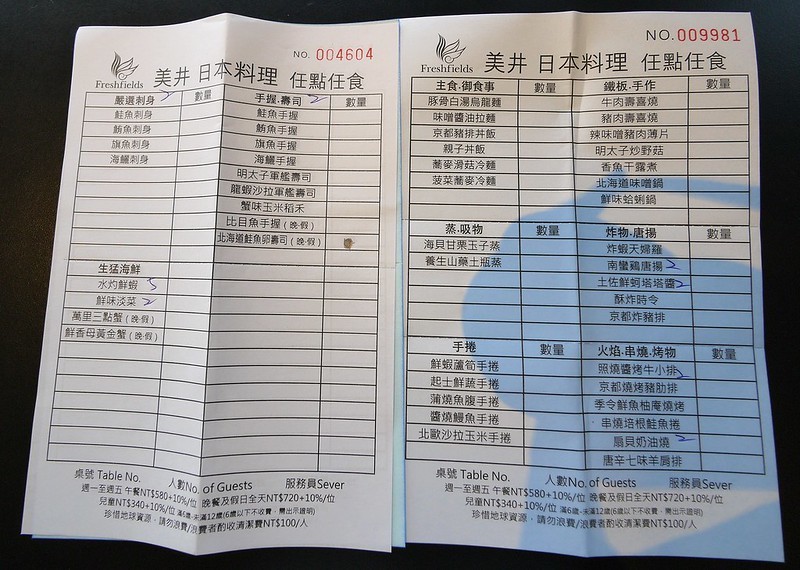 NO. 004604
Freshfields
美井 日本料理 任點任食
嚴選刺身 2 數量 手握.壽司 2 數量
鮭魚刺身 鮭魚手握
鮪魚刺身 鮪魚手握
旗魚刺身 旗魚手握
海鱺刺身 海鱺手握
明太子軍艦壽司
龍蝦沙拉軍艦壽司
蟹味玉米稻禾
比目魚手握(晚.假)
北海道鮭魚卵壽司(晚.假)
生猛海鮮
水灼鮮蝦 5
鮮味淡菜 2
萬里三點蟹(晚.假)
鮮香母黃金蟹(晚.假)
桌號 Table No. 人數No. of Guests 服務員Sever
週一至週五 午餐NT$580+10%/位 晚餐及假日全天NT$720+10%/位
兒童NT$340+10%/位 滿6歲-未滿12歲(6歲以下不收費，需出示證明)
珍惜地球資源，請勿浪費/浪費者酌收清潔費NT$100/人
NO. 009981
Freshfields
美井 日本料理 任點任食
主食.御食事 數量 鐵板.手作 數量
豚骨白湯烏龍麵 牛肉壽喜燒
味噌醬油拉麵 豬肉壽喜燒
京都豬排丼飯 辣味噌豬肉薄片
親子丼飯 明太子炒野菇
蕎麥滑菇冷麵 香魚干露煮
菠菜蕎麥冷麵 北海道味噌鍋
鮮味蛤蜊鍋
蒸.吸物 數量 炸物.唐揚 數量
海貝甘栗玉子蒸 炸蝦天婦羅
養生山藥土瓶蒸 南蠻鷄唐揚 2
土佐鮮蚵塔塔醬 2
酥炸時令
京都炸豬排
手捲 數量 火焰.串燒.烤物 數量
鮮蝦蘆筍手捲 照燒醬烤牛小排 2
起士鮮蔬手捲 京都燒烤豬肋排
蒲燒魚腹手捲 季令鮮魚柚庵燒烤
醬燒鰻魚手捲 串燒培根鮭魚捲
北歐沙拉玉米手捲 扇貝奶油燒 2
唐辛七味羊肩排
桌號 Table No. 人數No. of Guests 服務員Sever
週一至週五 午餐NT$580+10%/位 晚餐及假日全天NT$720+10%/位
兒童NT$340+10%/位 滿6歲-未滿12歲(6歲以下不收費，需出示證明)
珍惜地球資源，請勿浪費/浪費者酌收清潔費NT$100/人